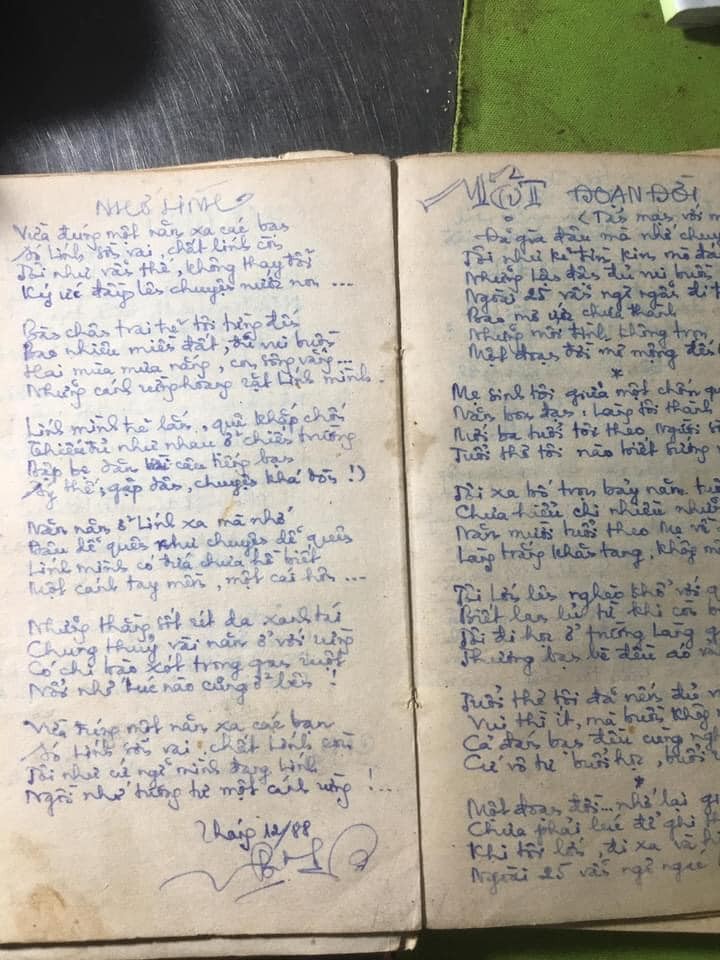 NHỚ LÍNH
Vừa đúng một năm xa các bạn
Áo Lính sờn vai, chất lính còn
Tôi như vẫn thế, không thay đổi
Ký ức đầy lên chuyện nước non ...
Bàn chân trai trẻ tôi từng đến
Bao nhiêu miền đất, đủ vui buồn
Hai mùa mưa nắng, con sông vắng ...
Những cánh rừng hoang rất Lính mình.
Lính mình trẻ lắm, quê khắp chốn
Thiếu đủ như nhau ở chiến trường
Bập bẹ dăm ba câu tiếng bạn
Ấy thế, gặp dân, chuyện khá dòn !)
Năm năm ở Lính xa mà nhớ
Đâu dễ quên như chuyện dễ quên
Lính mình có đứa chưa hề biết
Một cánh tay mềm, một cái hôn ...
Những thằng sốt rét da xanh tái
Chung thuỷ vài năm ở với rừng
Có chi bào xót trong gan ruột
Nỗi nhớ lúc nào cũng ở bên !
Vừa đúng một năm xa các bạn
Áo Lính sờn vai, chất Lính còn
Tôi như cứ nghĩ mình đang Lính
Ngồi nhớ tương tư một cánh rừng !...
Tháng 12/88
MỘT ĐOẠN ĐỜI
(Tản mạn với
Đã già đâu mà nhớ
Tôi như kẻ tìm kim mò
Những lên đến đủ vui buồn
Ngoài 25 vẫn ngỡ ngỡ đi
Bao mơ ước chưa thành
Những mối tình không trọn
Một đoạn đời mơ mộng
*
Mẹ sinh tôi giữa một chốn
Năm bom đạn, Làng tôi thành
Mới ba tuổi tôi theo Người
Tuổi thơ tôi nào biết sướng
Tôi xa bố tròn bảy năm
Chưa hiểu chi nhiều
Năm mười tuổi theo Mẹ về
Làng trắng khăn tang, khắp
Tôi Lớn lên nghèo khổ với
Biết lam lũ từ khi còn
Tôi đi học ở trường Làng
Thương bạn bè đều áo
Tuổi thơ tôi đã nếm đủ
Vui thì ít, mà buồn
Cả đám bạn đều cùng
Cứ vô tư buổi học, buổi
*
Một đoạn đời... nhớ lại
Chưa phải lúc để ghi
Khi tôi lớn, đi xa và
Ngoài 25 vẫn ngỡ